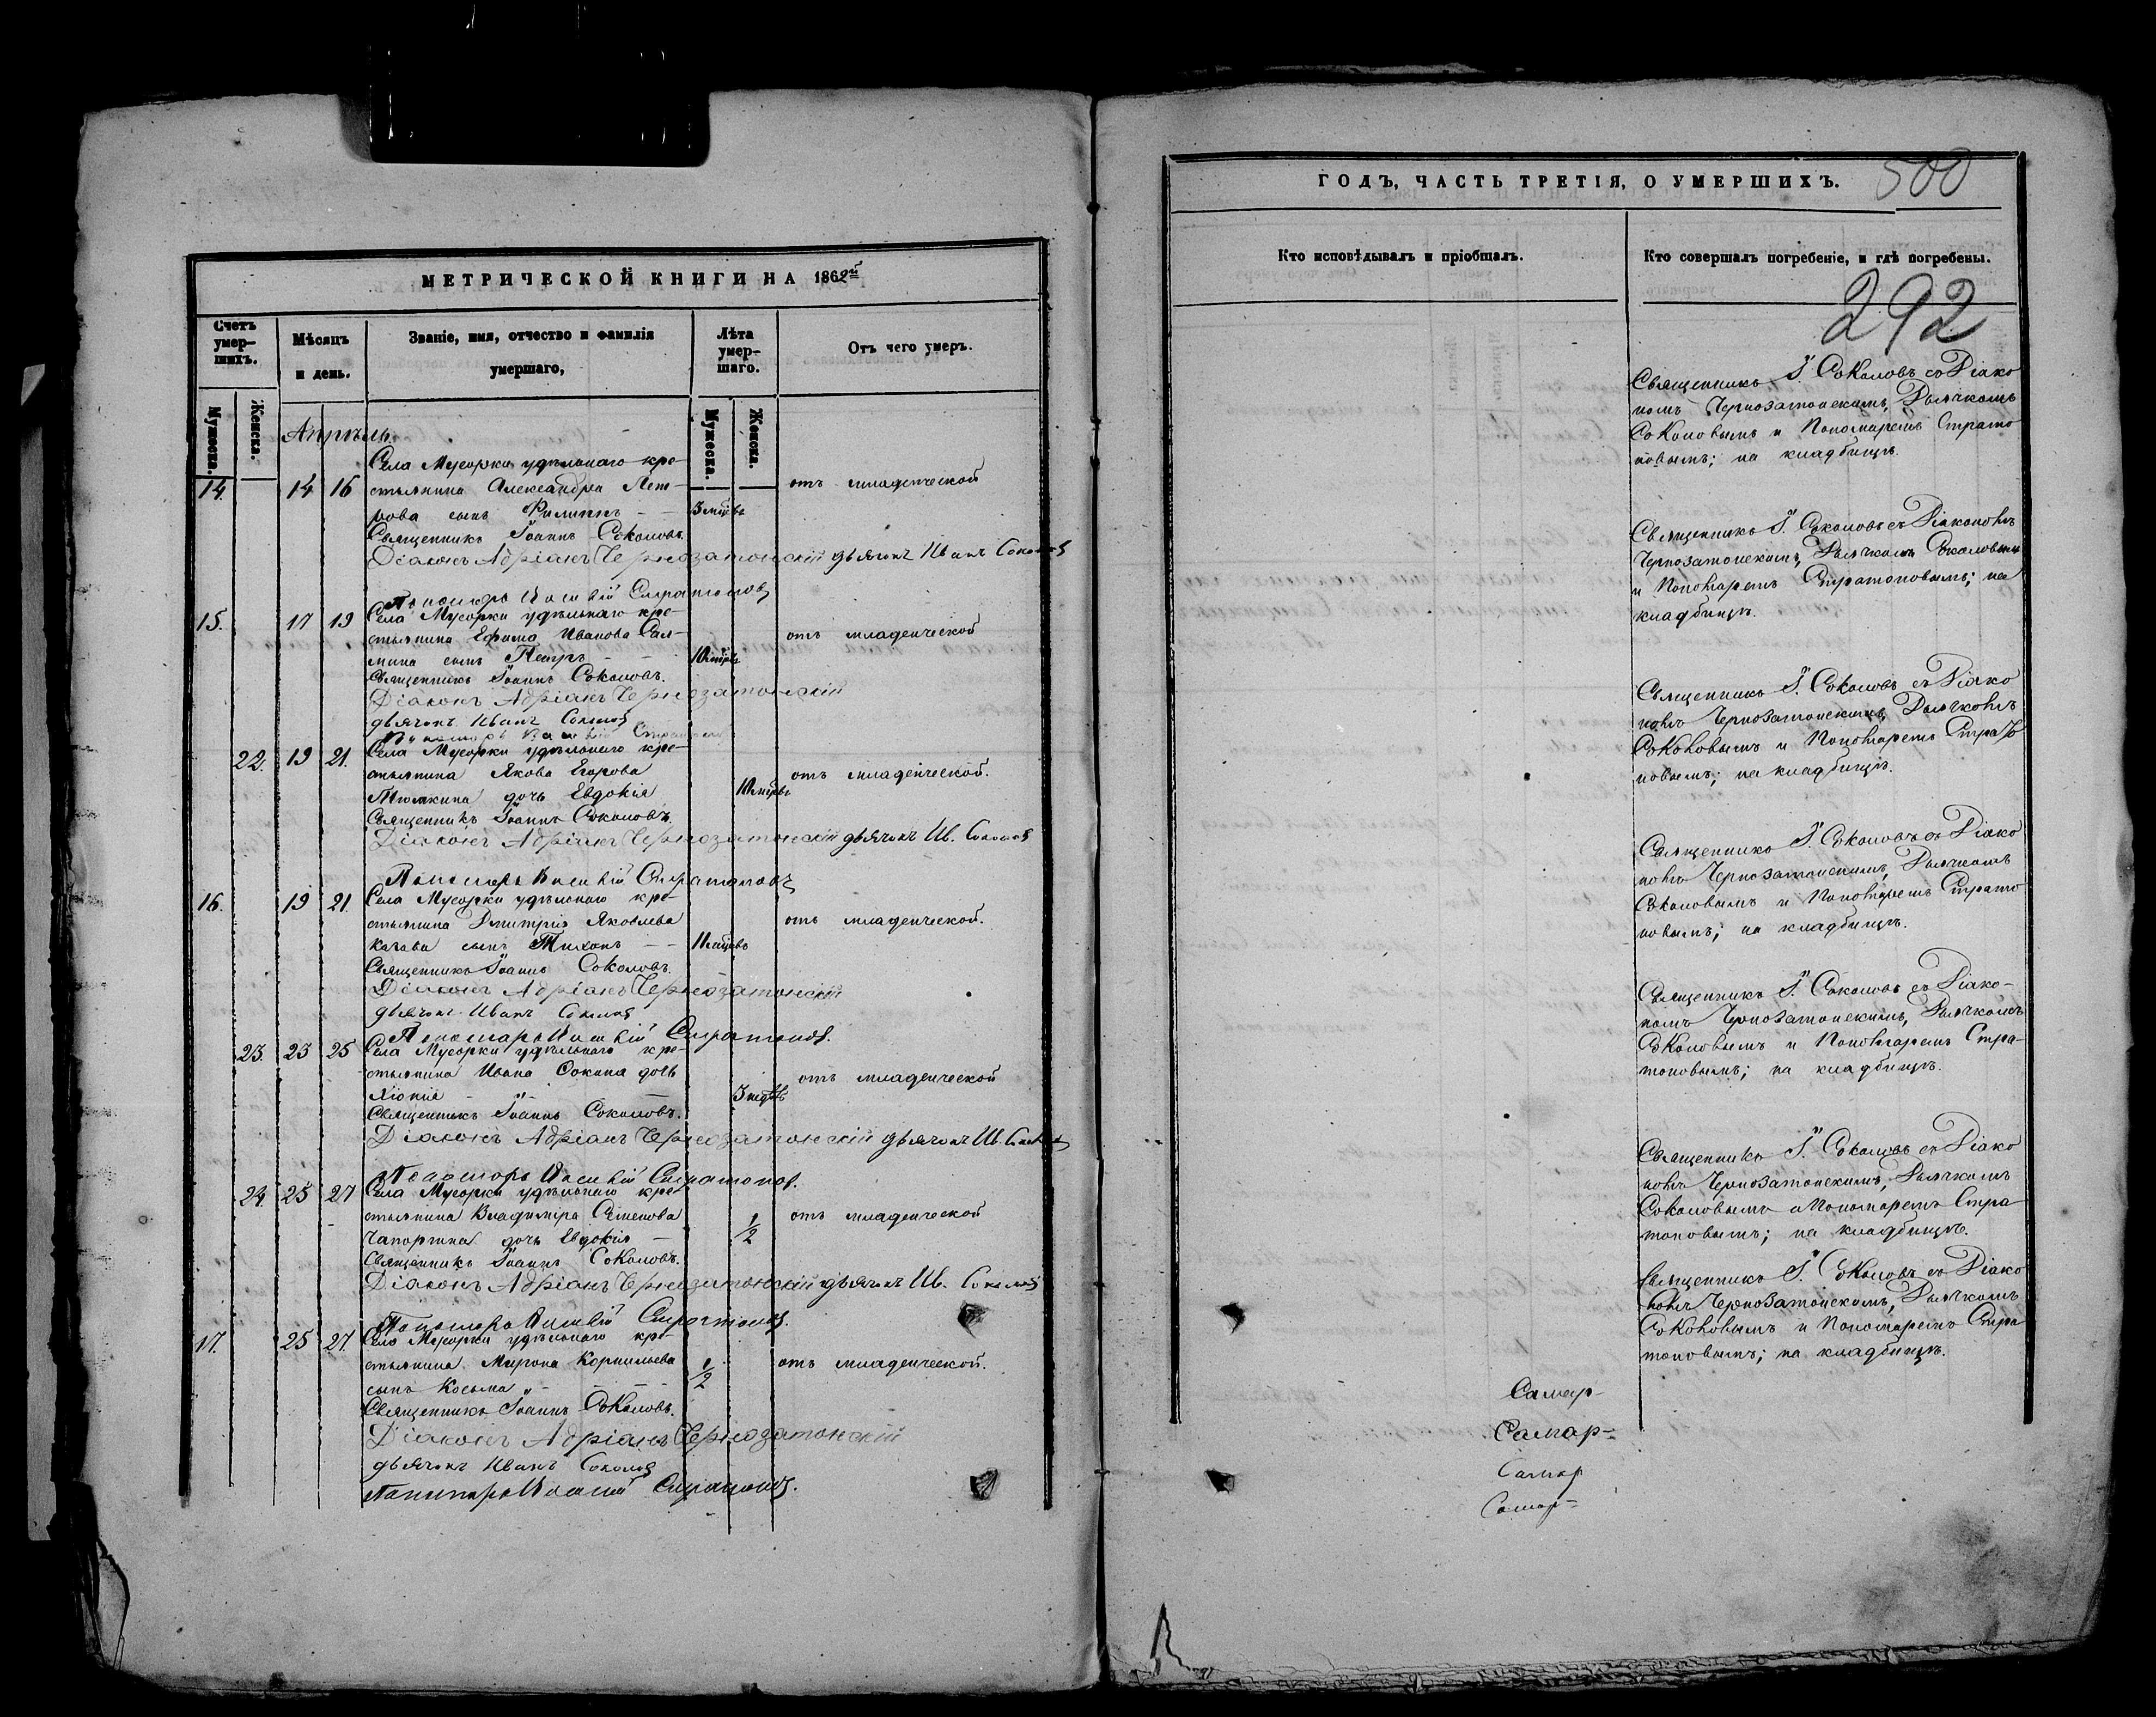 МЕТРИЧЕСКОЙ КНИГИ НА 1862й
Счетъ умер-шихъ.
Мѣсяцъ и день.
Званіе, имя, отчество и фамилія умершаго,
Лѣта умер-шаго.
Отъ чего умеръ.
Мужеска.
Женска.
Мужеска.
Женска.
Апрѣль.
Села Мусорки удѣльнаго кре-
14. 14 16 стьянина Александра Пет- отъ младенческой
рова сынъ Филиппъ - - 3 мѣсц.
Священникъ Іоаннъ Соколовъ.
Діаконъ Адріанъ Чернозатонскій дьячокъ Иванъ Соколов
Пономарь Стратоновъ
15. 17 19 Села Мусорки удѣльнаго кре-
стьянина Ефима Иванова отъ младенческой
сынъ Петръ - - 10 мѣсц.
Священникъ Іоаннъ Соколовъ.
Діаконъ Адріанъ Чернозатонскій
дьячокъ Иванъ Соколов
Пономарь
22. 19 21. Села Мусорки удѣльнаго кре-
стьянина Якова Егорова отъ младенческой.
дочь Евдокія
Священникъ Іоаннъ Соколовъ.
Діаконъ Адріанъ Чернозатонскій дьячокъ Ив. Соколов
Пономарь Стратоновъ
16. 19 21. Села Мусорки удѣльнаго кре-
стьянина Дмитрія Яковлева отъ младенческой.
сынъ Тихонъ - -
Священникъ Іоаннъ Соколовъ.
Діаконъ Адріанъ Чернозатонскій
дьячокъ Иванъ Соколов
Пономарь Стратонов.
23. 23 25 Села Мусорки удѣльнаго кре-
стьянина Ивана Сокина дочь отъ младенческой
Священникъ Іоаннъ Соколовъ.
Діаконъ Адріанъ Чернозатонскій дьячокъ Ив.
Пономарь Стратонов.
24. 25 27 Села Мусорки удѣльнаго кре-
стьянина Владиміра Семенова 1/2 отъ младенческой
дочь Евдокія -
Священникъ Іоаннъ Соколовъ.
Діаконъ Адріанъ Чернозатонскій дьячокъ Ив. Соколов
Пономарь Стратонов.
17. 25 27. Села Мусорки удѣльнаго кре-
стьянина Мирона Корнильева 1/2 отъ младенческой.
сынъ Косьма „ - - - -
Священникъ Іоаннъ Соколовъ.
Діаконъ Адріанъ Чернозатонскій
дьячокъ Иванъ Соколов
Пономарь Стратонов.
ГОДЪ, ЧАСТЬ ТРЕТІЯ, О УМЕРШИХЪ. 500
Кто исповѣдывалъ и пріобщалъ.
Кто совершалъ погребеніе, и гдѣ погребены.
292
Священникъ І. Соколовъ со Діако
номъ Чернозатонскимъ, Дьячкомъ
Соколовымъ и Пономаремъ Страто
новымъ; на кладбищѣ.
Священникъ І. Соколовъ съ Діакономъ
Чернозатонскимъ, Дьячкомъ Соколовымъ
и Пономаремъ Стратоновымъ; на
кладбищѣ.
Священникъ І. Соколовъ съ Діако
номъ Чернозатонскимъ, Дьячкомъ
Соколовымъ и Пономаремъ Страто
новымъ; на кладбищѣ.
Священникъ І. Соколовъ съ Діако
номъ Чернозатонскимъ, Дьячкомъ
Соколовымъ и Пономаремъ Страто
новымъ; на кладбищѣ.
Священникъ І. Соколовъ съ Діако-
номъ Чернозатонскимъ, Дьячкомъ
Соколовымъ и Пономаремъ Стра-
тоновымъ; на кладбищѣ.
Священникъ І. Соколовъ съ Діако
номъ Чернозатонскимъ, Дьячкомъ
Соколовымъ и Пономаремъ Стра-
тоновымъ; на кладбищѣ.
Священникъ І. Соколовъ съ Діако
номъ Чернозатонскимъ, Дьячкомъ
Соколовымъ и Пономаремъ Стра
тоновымъ; на кладбищѣ.
Самар-
Самар-
Самар
Самар-